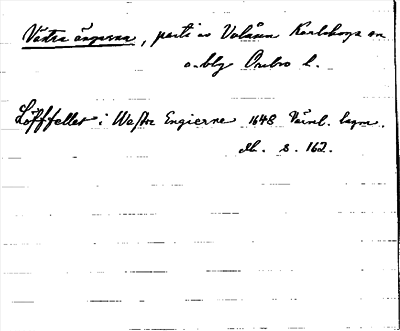 Västra ängarna, parti av Valåsen Karlskoga sn
o. blg Örebro l.
Löfffallet i Wastre Engierne 1648 Värml. bergm.
db. s. 162.